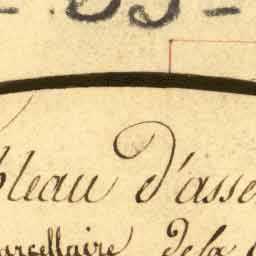 bleau d'asse
arcellaire de la